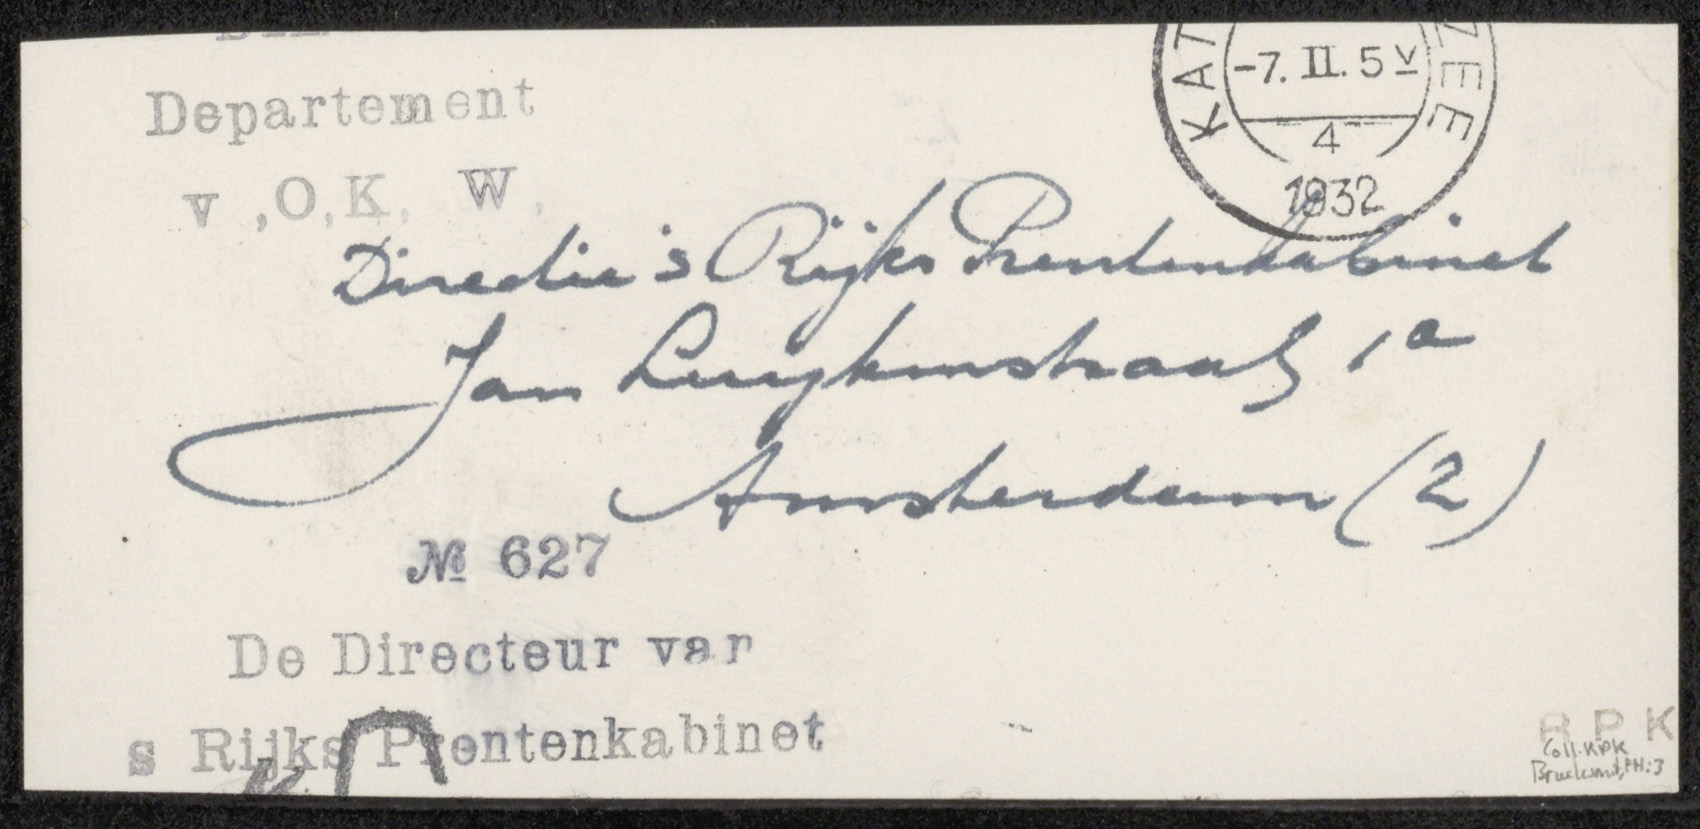 Departement
v ,O,K, W,
KAT ZEE
-7. II. 5 V
4
1932
Directie 's Rijks Prentenkabinet
Jan Luykenstraat 1a
Amsterdam (2)
№ 627
De Directeur van
s Rijks Prentenkabinet
R P K
Coll. KPK
PH:3